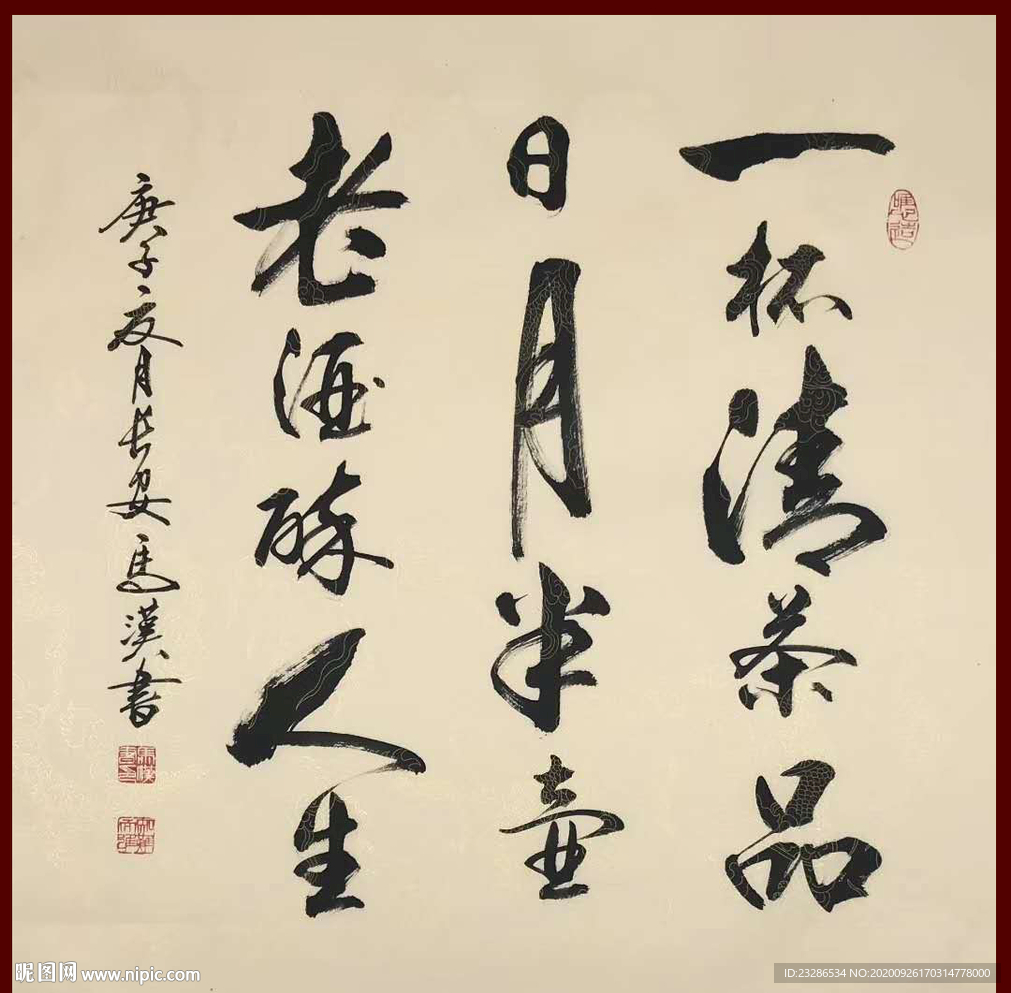 一杯清茶品
日月半壶
老酒醉人生
庚子夏月长安马漢书
昵图网 www.nipic.com
ID:23286534 NO:20200926170314778000